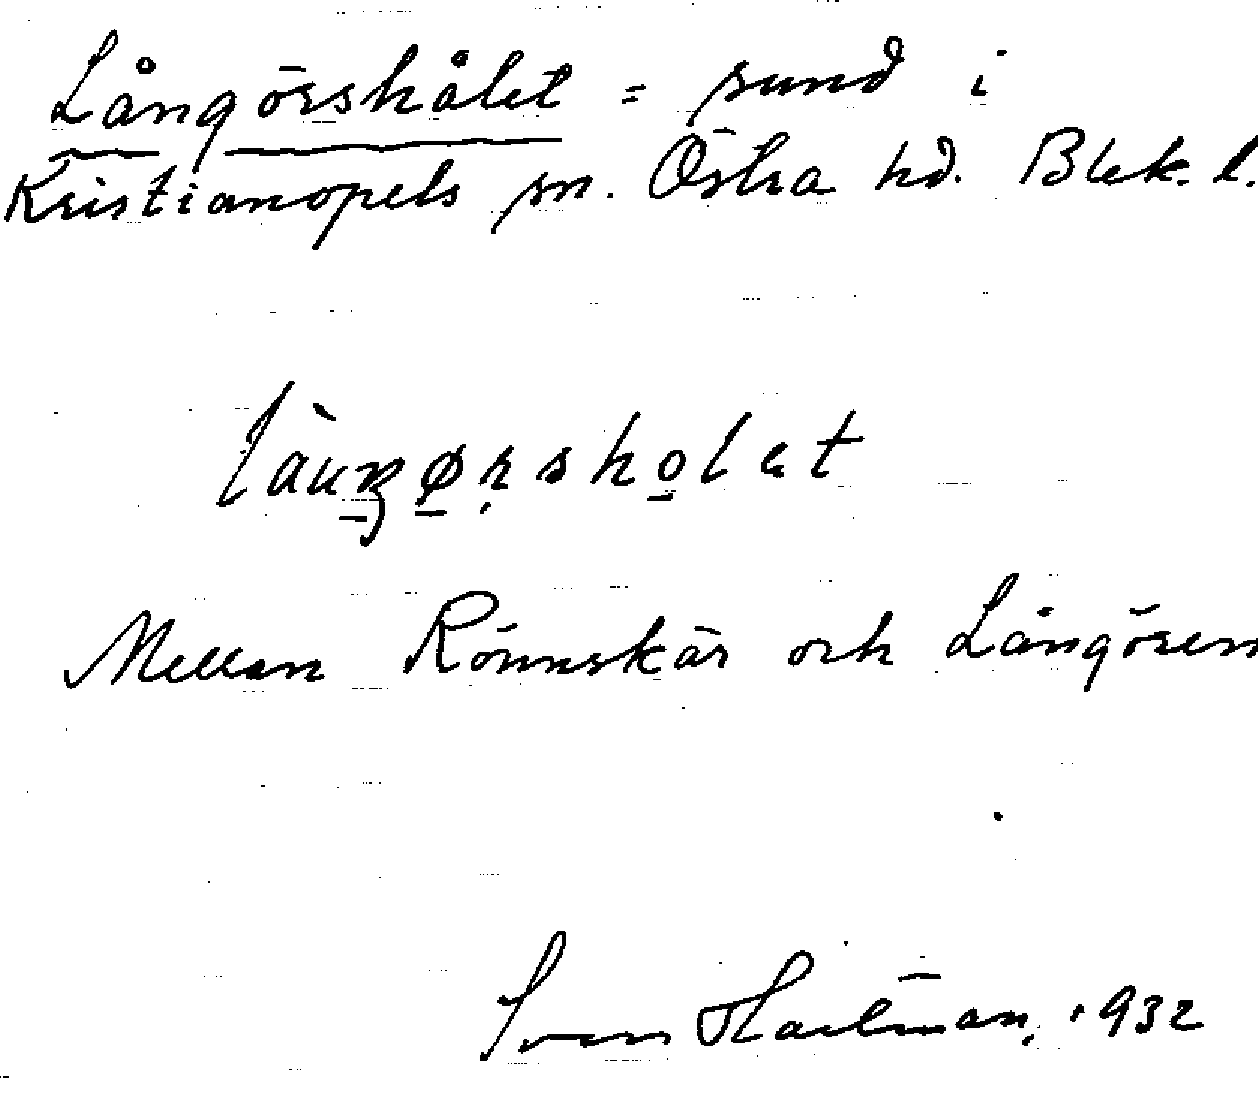 Långörshålet = sund i
Kristianopels sn. Östra hd. Blek. l.
làuŋørsholet
Mellan Rönnskär och Långören
Sven Hartman, 1932